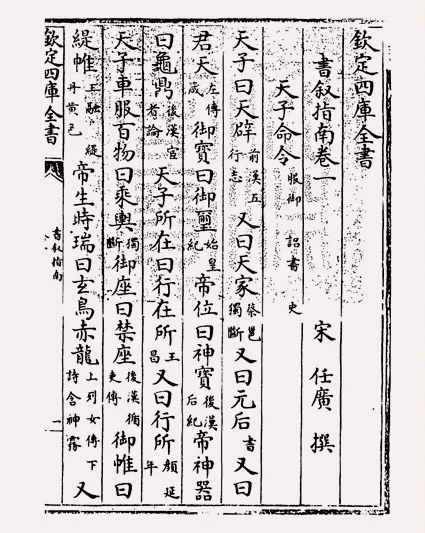 欽定四庫全書
書叙指南卷一
宋 任廣 撰
天子命令服御 詔書 史
天子曰天辟前漢五行志又曰天家蔡邕獨斷又曰元后書又曰
君天左傳宣御寶曰御璽始皇紀帝位曰神寶後漢后紀帝神器
曰龜鼎後漢宦者論天子所在曰行在所王昌又曰行所顏延年
天子車服百物曰乘輿獨斷御座曰禁座後漢循吏傳御帷曰
緹帷王融緹丹黄色帝生時瑞曰玄鳥赤龍上列女傳下詩含神霧又
欽定四庫全書
書叙指南
一